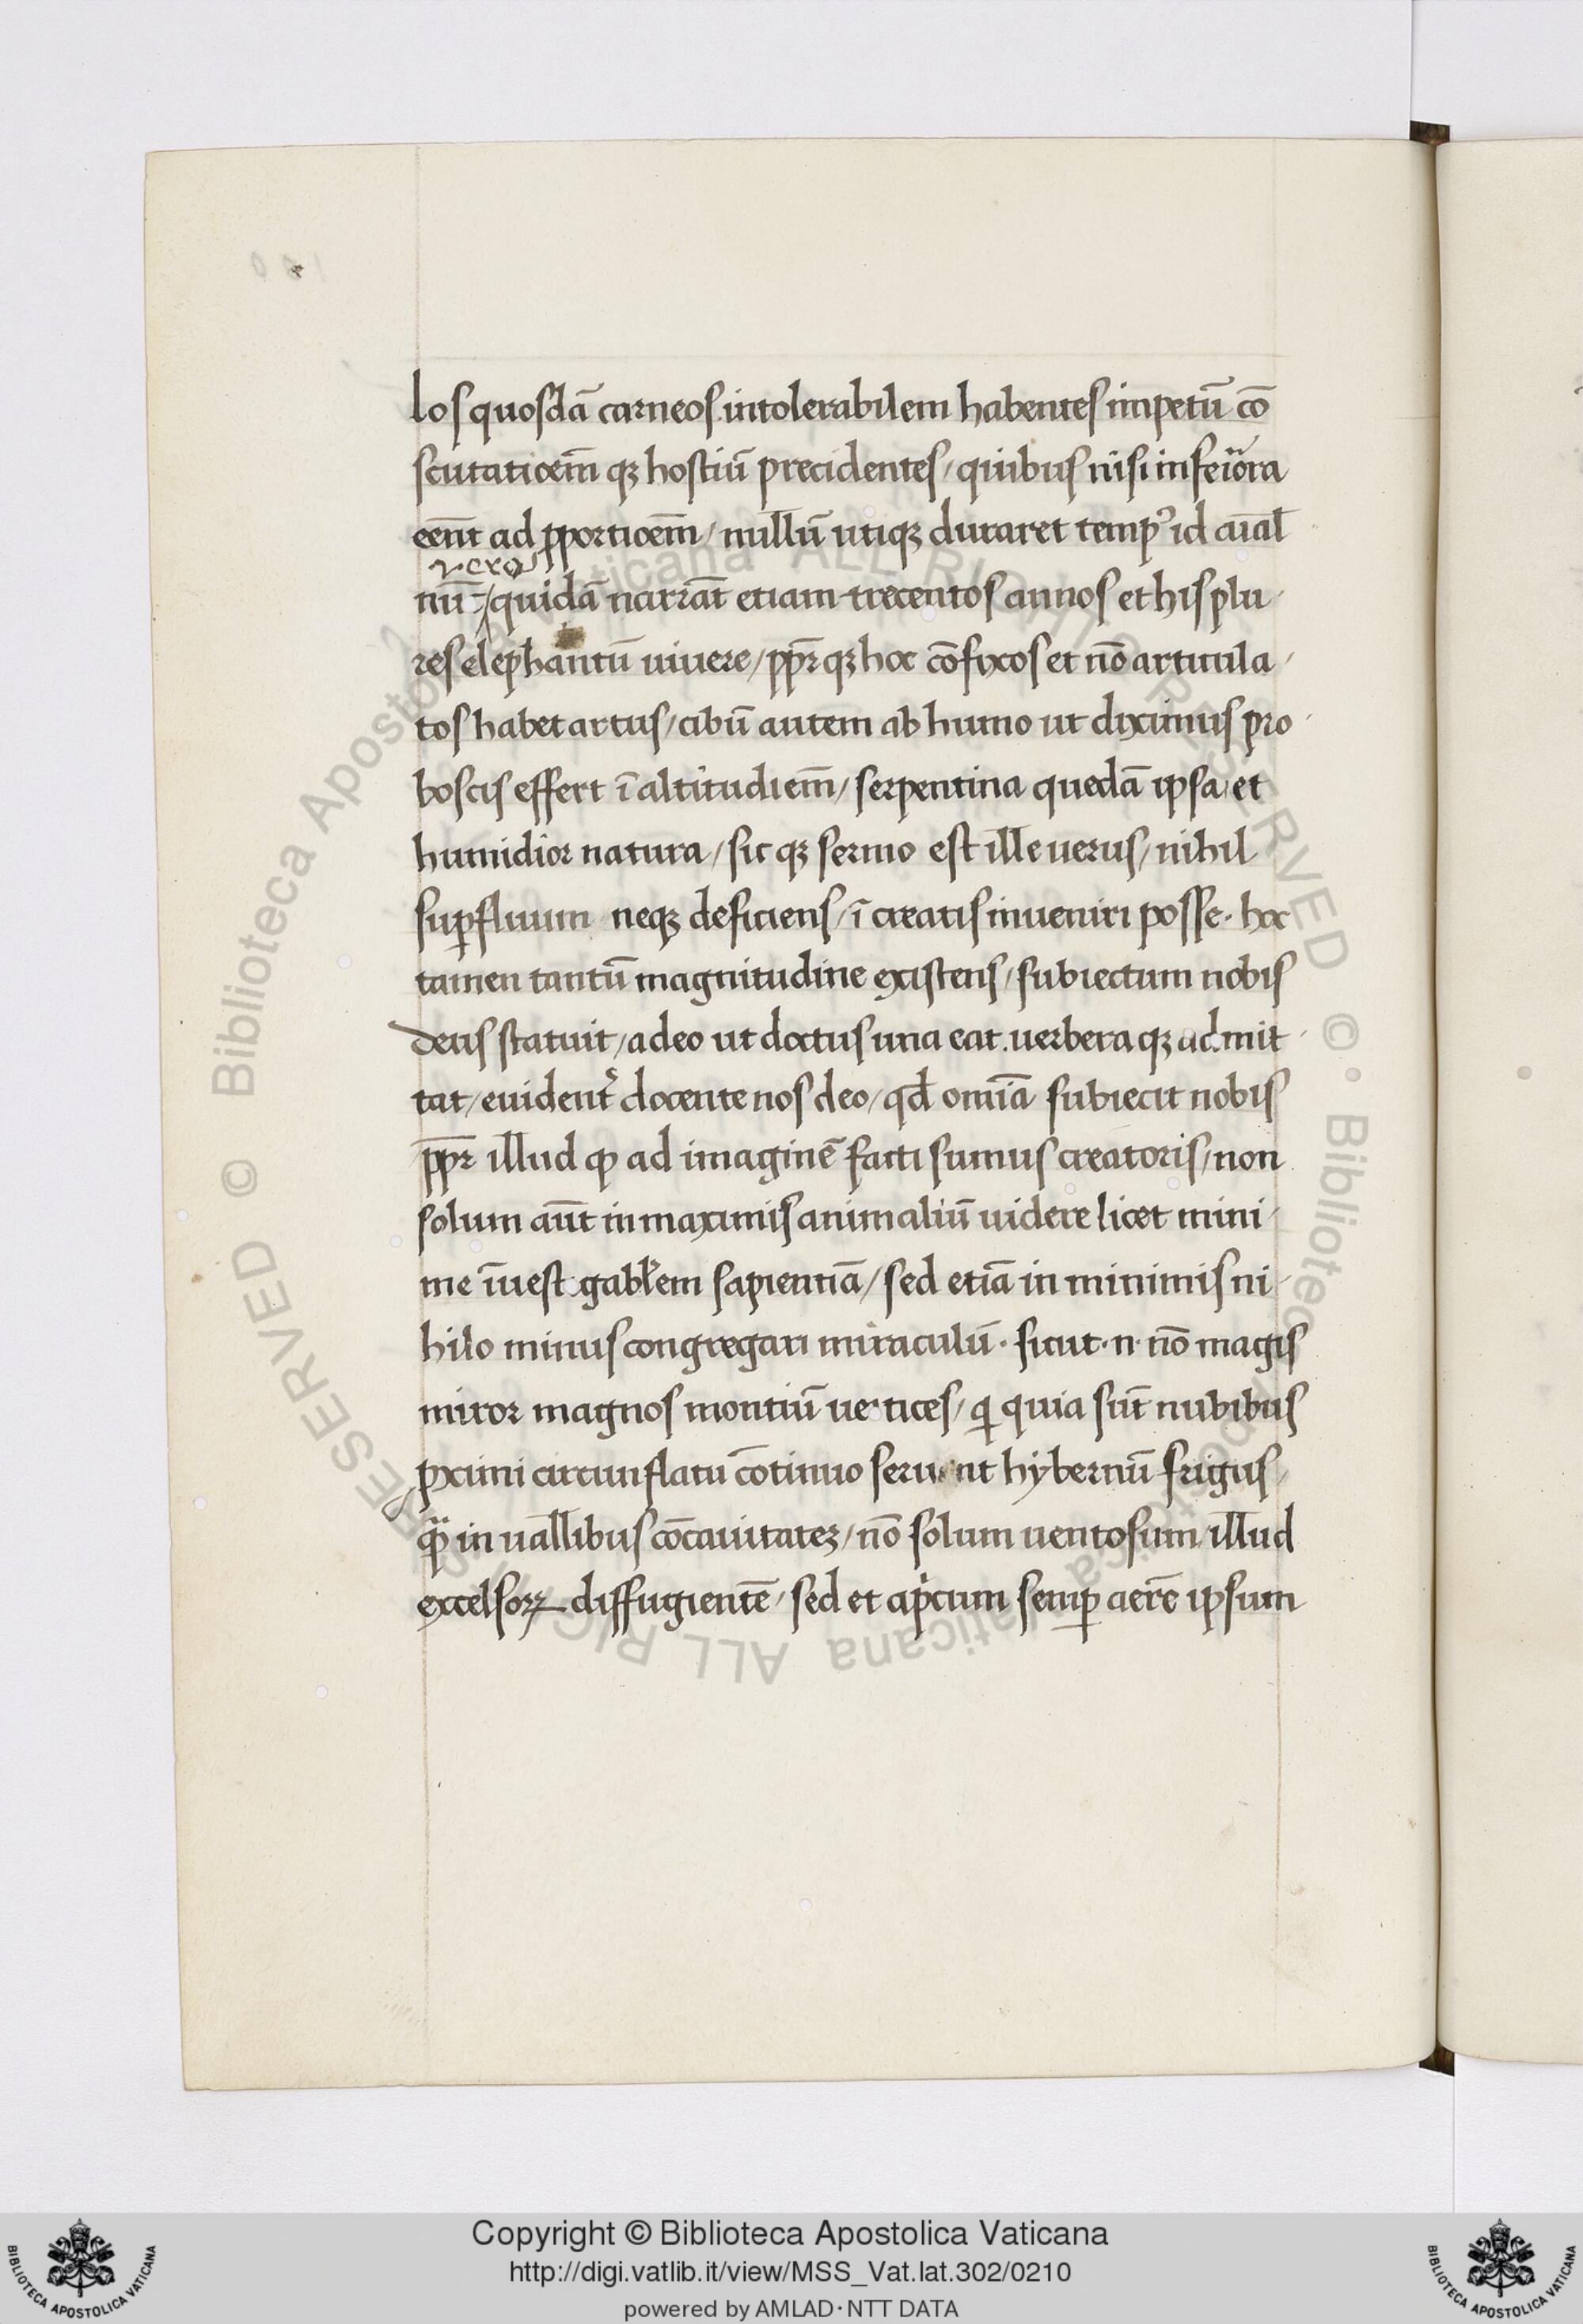 los quosdā carneos intolerabilem habentes impetū cō
scutatioem̄ qꝫ hostiū precidentes / quibus nisi inferiora
eēnt ad ꝓportioem̄ / nullū utiqꝫ duraret tempꝰ id aīal
uero
nū / quidā narrāt etiam trecentos annos et his plu
res elephantū uiuere / ꝓpr̄ qꝫ hoc cōfixos et nō articula /
tos habet artus / cibū autem ab humo ut diximus pro
boscis effert ī altitudiem̄ / serpentina quedā ipsa et
humidior natura / sic qꝫ sermo est ille uerus / nihil
suꝑfluum neqꝫ deficiens / ī creatis inueniri posse · hoc
tamen tantū magnitudine existens / subiectum nobis
deus statuit / adeo ut doctus una eat . uerbera qꝫ admit
tat / euident̄ docente nos deo / qđ omīa subiecit nobis
ꝓpr̄ illud ꝙ ad imaginē facti sumus creatoris / non
solum aūt in maximis animaliū uidere licet mini
me īuestigabl̄em sapientiā / sed etiā in minimis ni
hilo minus congregari miraculū · sicut · n · nō magis
miror magnos montiū uertices / qi quia sūt nubibus
ꝓximi circunflatu cōtinuo seruant hybernū frigus /
qͣ̄ in uallibus cōcauitatez / nō solum uentosum illud
excelsoꝝ diffugientē / sed et apricum semꝑ aerē ipsum
Copyright © Biblioteca Apostolica Vaticana
http://digi.vatlib.it/view/MSS_Vat.lat.302/0210
powered by AMLAD·NTT DATA